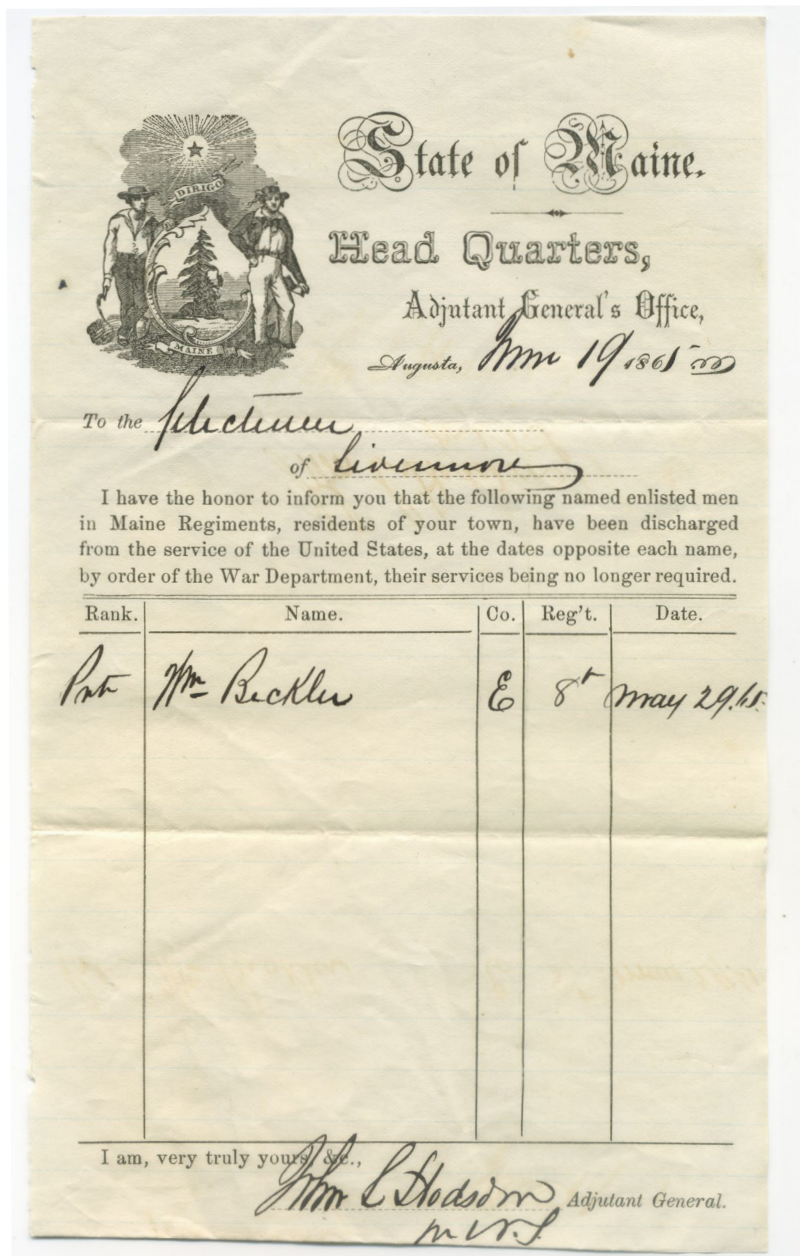 DIRIGO
MAINE
State of Maine.
Head Quarters,
Adjutant General's Office,
Augusta, June 19 1865
To the Selectmen
of Livermore
I have the honor to inform you that the following named enlisted men
in Maine Regiments, residents of your town, have been discharged
from the service of the United States, at the dates opposite each name,
by order of the War Department, their services being no longer required.
Rank. Name. Co. Reg't. Date.
Prvt Wm Beckler E 8th May 29.65.
I am, very truly yours, &c.,
John L Hodsdon Adjutant General.